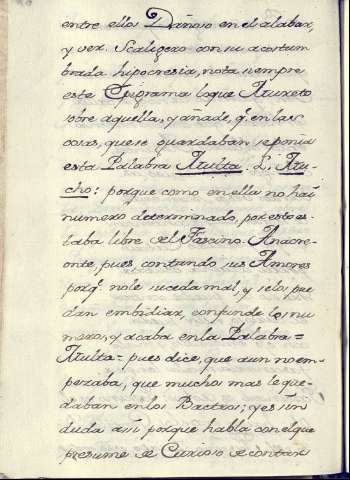 entre ellos Dañoso en el alabar,
y ver. Scaligero con su acostum
brada hipocresia, nota siempre
este Epigrama lo que Mureto
sobre aquella, y añade, q.e en las
cosas, que se guardaban se ponia
esta Palabra Multa. L. Mu-
cho: porque como en ella no hai
numero determinado, por esto es-
taba libre del Fascino. Anacre-
onte, pues, contando sus Amores
porq.e no le suceda mal, y selos pue
dan embidiar, confunde los nu
meros, y acaba en la Palabra=
Multa= pues dice, que aun no em-
pezaba, que muchos mas le que-
daban en los Bactros; y es sin
duda asi porque habla con el que
presume de Curioso de contar